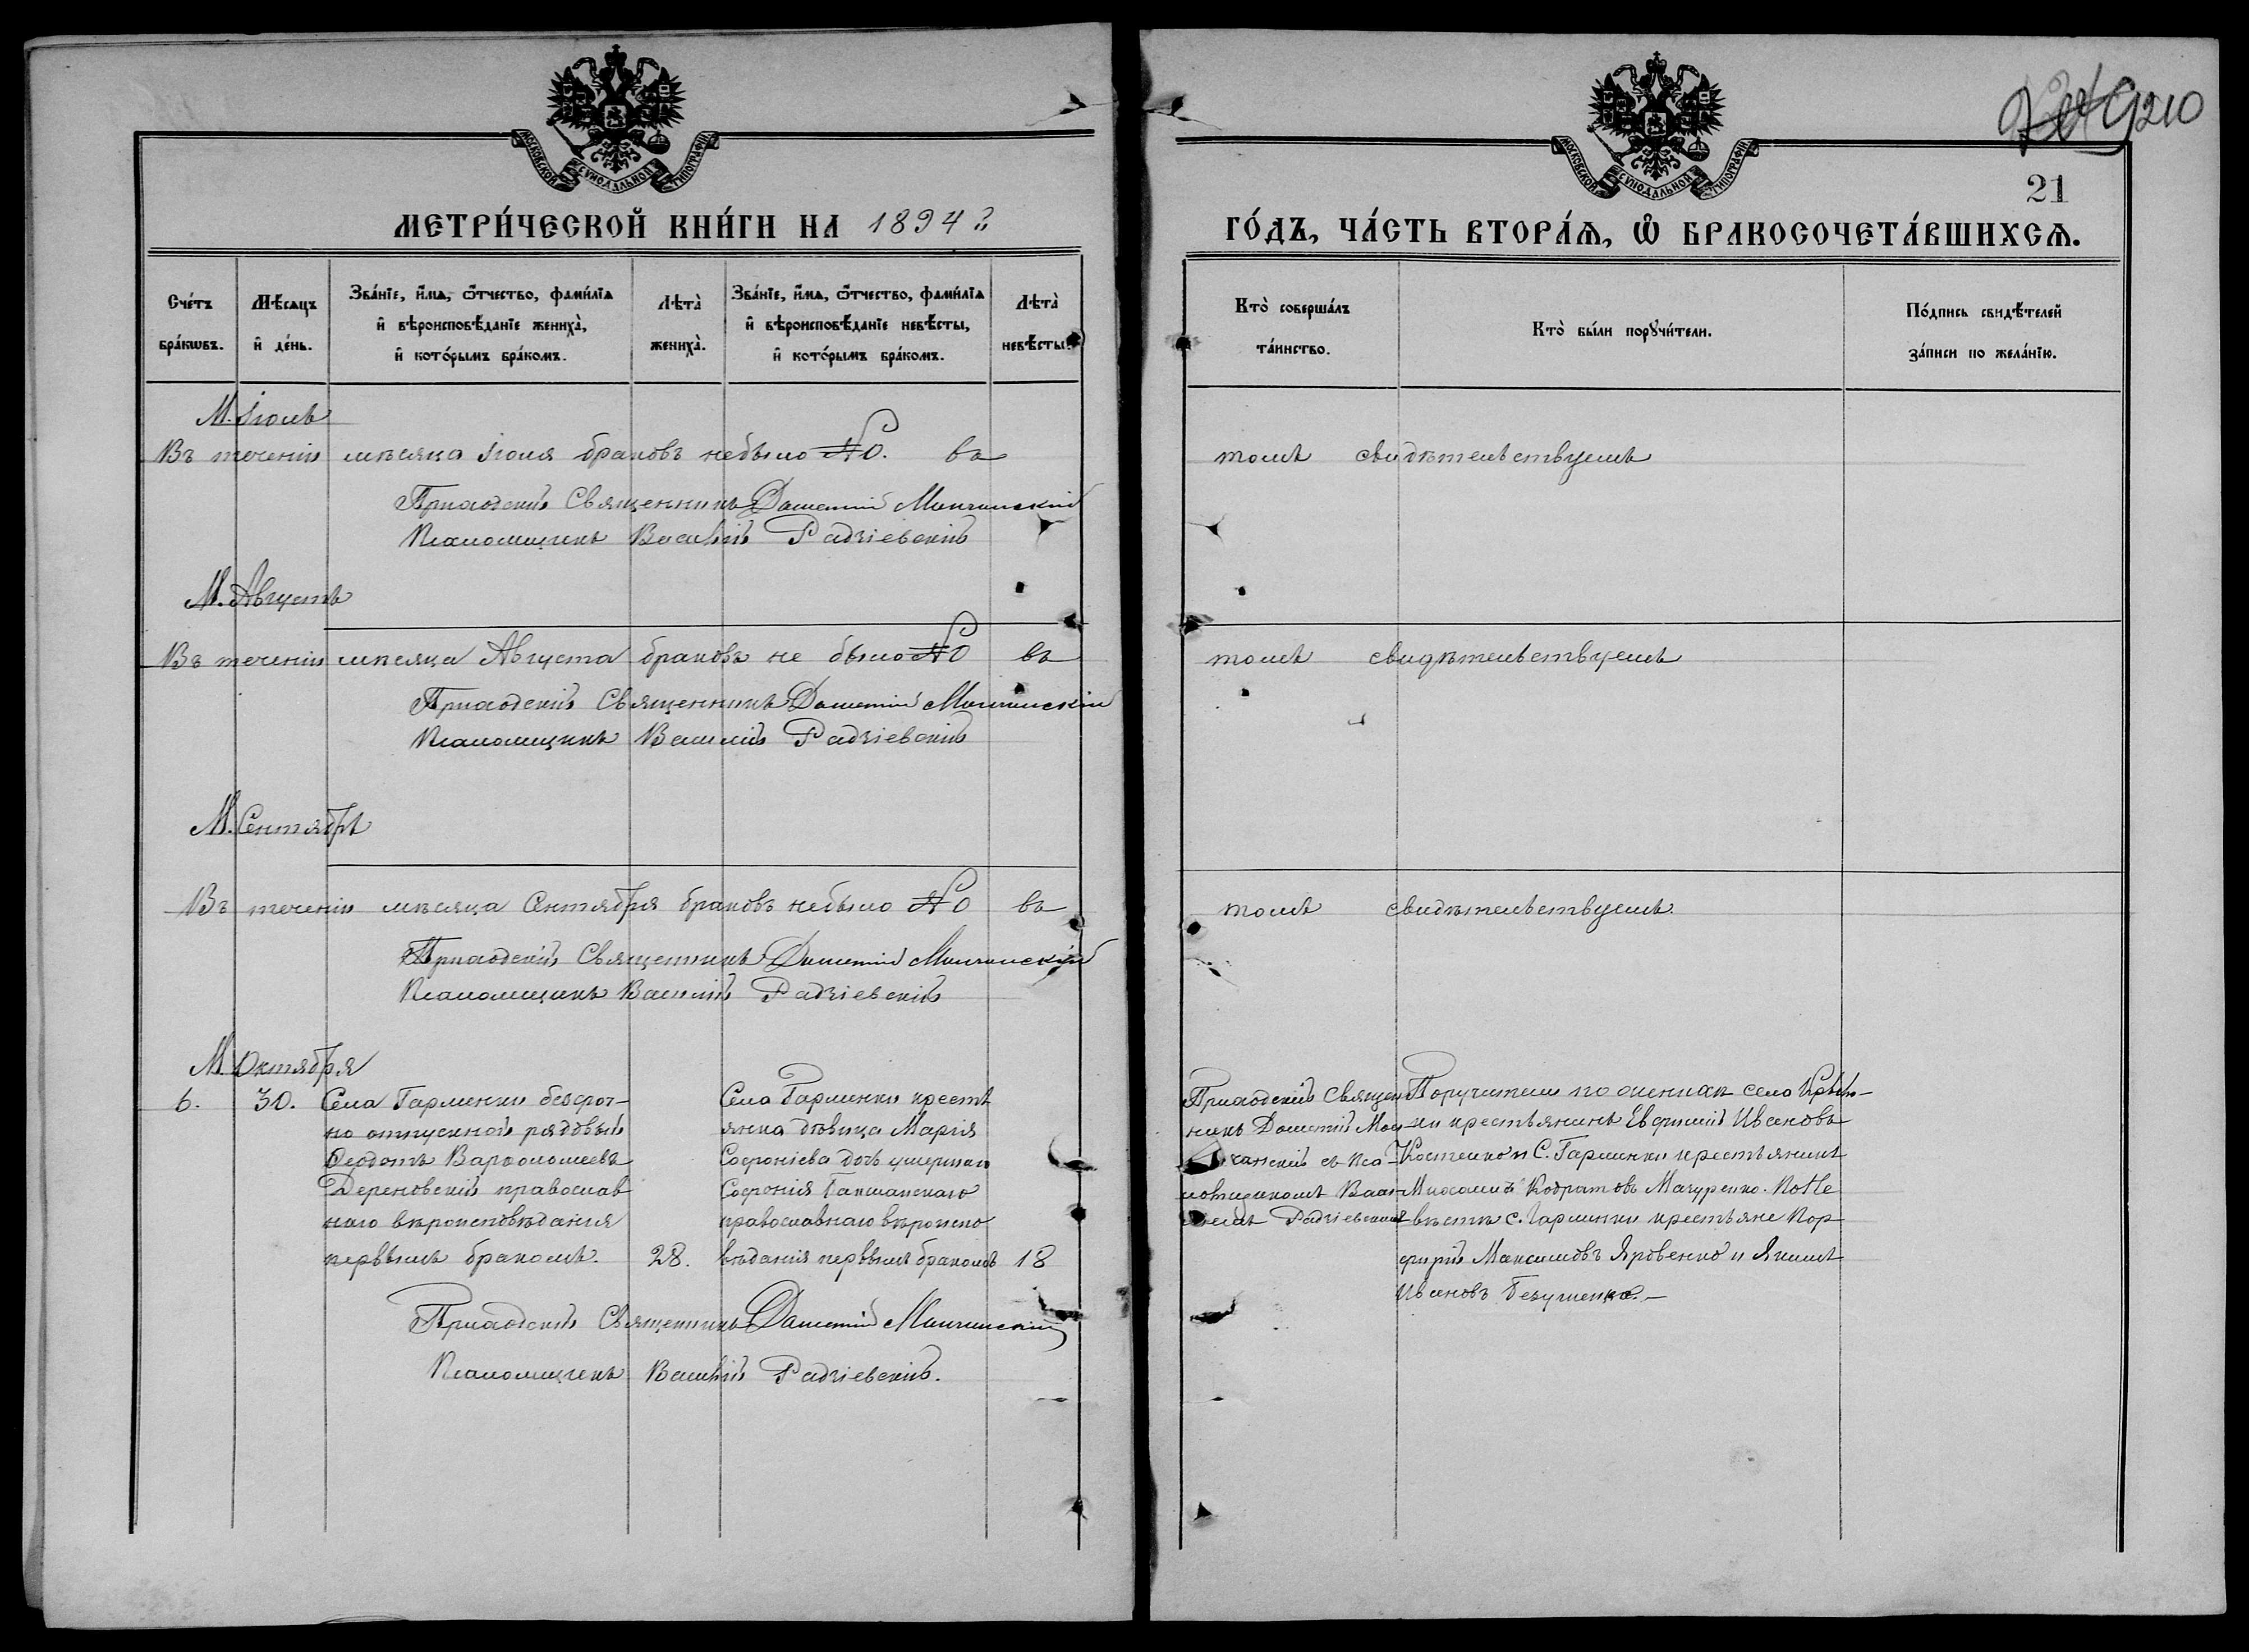 МОСКОВСКОЙ СѴНОДАЛЬНОЙ ТИПОГРАФІИ
МЕТРИ́ЧЕСКОЙ КНИ́ГИ НА 1894 г.
Сче́тъ бра́кѡвъ.
Мѣ́сяцъ и҆ де́нь.
Зва́нїе, и҆́мѧ, ѻ҆́тчество, фами́лїѧ и҆ вѣроисповѣ́данїе жениха̀, и҆ кото́рымъ бра́комъ.
Лѣта̀ жениха̀.
Зва́нїе, и҆́мѧ, ѻ҆́тчество, фами́лїѧ и҆ вѣроисповѣ́данїе невѣ́сты, и҆ кото́рымъ бра́комъ.
Лѣта̀ невѣ́сты.
М. Іюль
Въ теченіи мѣсяца Іюля браковъ небыло №0. въ
Приходскій Священникъ
Псаломщикъ Василій Радзіевскій
М. Августъ
Въ теченіи мѣсяца Августа браковъ не было №0 въ
Приходскій Священникъ
Псаломщикъ Василій Радзіевскій
М. Сентябрь
Въ теченіи мѣсяца Сентября браковъ небыло №0 въ
Приходскій Священникъ
Псаломщикъ Василій Радзіевскій
М. Октября
6. 30.
Села Гарминки безсроч-
но отпускной рядовый
Ѳеодотъ Варѳоломеевъ
Дереновскій православ
наго вѣроисповѣданія
первымъ бракомъ. 28.
Села Гарминки кресть
янка дѣвица Марія
Софроніева дочь умершаго
Софронія
православнаго вѣроиспо
вѣданія первымъ бракомъ 18
Приходскій Священникъ
Псаломщикъ Василій Радзіевскій.
210
21
МОСКОВСКОЙ СѴНОДАЛЬНОЙ ТИПОГРАФІИ
ГО́ДЪ, ЧА́СТЬ ВТОРА́Ѧ, Ѡ҆ БРАКОСОЧЕТА́ВШИХСѦ.
Кто̀ соверша́лъ та́инство.
Кто̀ бы́ли порꙋчи́тели.
По́дпись свидѣ́телей за́писи по жела́нїю.
томъ свидѣтельствуемъ
томъ свидѣтельствуемъ
томъ свидѣтельствуемъ.
Приходскій Священ
никъ
съ Пса-
ломщикомъ Васи-
ліемъ Радзіевскимъ
Поручители по женихѣ села
крестьянинъ Евфимій Ивановъ
Костенко и С. Гарминки крестьянинъ
Мазуренко. По не
вѣстѣ с. Гарминки крестьяне Пор
фирій Максимовъ Яровенко и Якимъ
Ивановъ